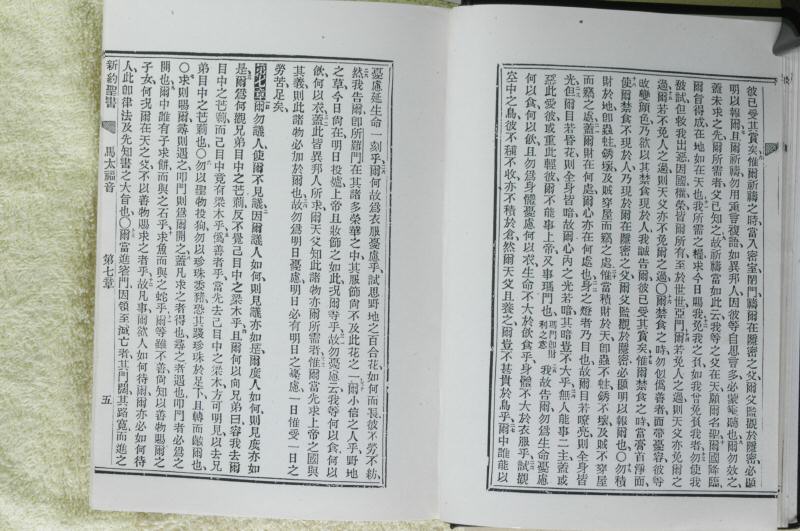 彼已受其賞矣惟爾祈禱之時當入密室閉門禱爾在隱密之父爾父監觀於隱密必顯
明以報爾且爾祈禱勿用重複語如異邦人因彼等自思言多必蒙垂聽也爾勿效之
蓋未求之先爾所需者父已知之故祈禱當如此云我等之父在天願爾名聖爾國降臨
爾旨得成在地如在天也我所需之糧求今日賜我免我之負如我曾免負我者勿使我
被試但救我出惡因國權榮皆爾所有至於世世亞門爾若免人之過則天父亦免爾之
過爾若不免人之過則天父亦不免爾之過○爾禁食之時勿似僞善者而帶憂容彼等
改變顏色乃欲以其禁食現於人我誠告爾彼已受其賞矣惟爾禁食之時當膏首淨面
使爾禁食不現於人乃現於爾在隱密之父爾父監觀於隱密必顯明以報爾也○勿積
財於地卽蟲蛀銹壞及賊穿屋而竊之處惟當積財於天卽蟲不蛀銹不壞及賊不穿屋
而竊之處蓋爾財在何處爾心亦在何處也身之燈者乃目也故爾目若瞭亮則全身皆
光但爾目若昏花則全身皆暗故爾心內之光若暗其暗豈不大乎無人能事二主蓋或
惡此愛彼或重此輕彼爾不能事上帝又事瑪門也瑪門卽財利之意我故告爾勿爲生命憂慮
何以食何以飲且勿爲身體憂慮何以衣生命不大於飲食乎身體不大於衣服乎試觀
空中之鳥彼不稼不收亦不積於倉然爾天父且養之爾豈不甚貴於鳥乎爾中誰能以
憂慮延生命一刻乎爾何故爲衣服憂慮乎試思野地之百合花如何而長彼不勞不紡
然我告爾卽所羅門在其諸多榮華之中其服飾尚不及此花之一爾小信之人乎野地
之草今日尚在明日投爐上帝且妝飾之如此況爾等乎故勿憂慮云我等何以食何以
飲何以衣蓋此皆異邦人所求爾天父知此諸物亦爾所需者惟爾當先求上帝之國與
其義則此諸物必加於爾也故勿爲明日憂慮明日必有明日之憂慮一日惟受一日之
勞苦足矣
第七章爾勿議人使爾不見議因爾議人如何則見議亦如是爾度人如何則見度亦如
是爾爲何觀兄弟目中之芒芴反不覺己目中之梁木乎且爾何以向兄弟曰容我去爾
目中之芒芴而己目中竟有梁木乎僞善者乎當先去己目中之梁木方可明見以去兄
弟目中之芒芴也○勿以聖物投狗勿以珍珠委豬恐其踐珍珠於足下且轉而齩爾也
○求則賜爾尋則遇之叩門則爲爾開之蓋凡求之者得也尋之者遇也叩門者必爲之
開也爾中誰有子求餠而與之石乎求魚而與之蛇乎爾等雖不善尚知以善物賜爾之
子女何況爾在天之父不以善物賜求之者乎故凡事爾欲人如何待爾爾亦必如何待
人此卽律法及先知書之大旨也○爾當進窄門因領至滅亡者其門闊其路寬而進之
新約聖書 馬太福音 第七章 五